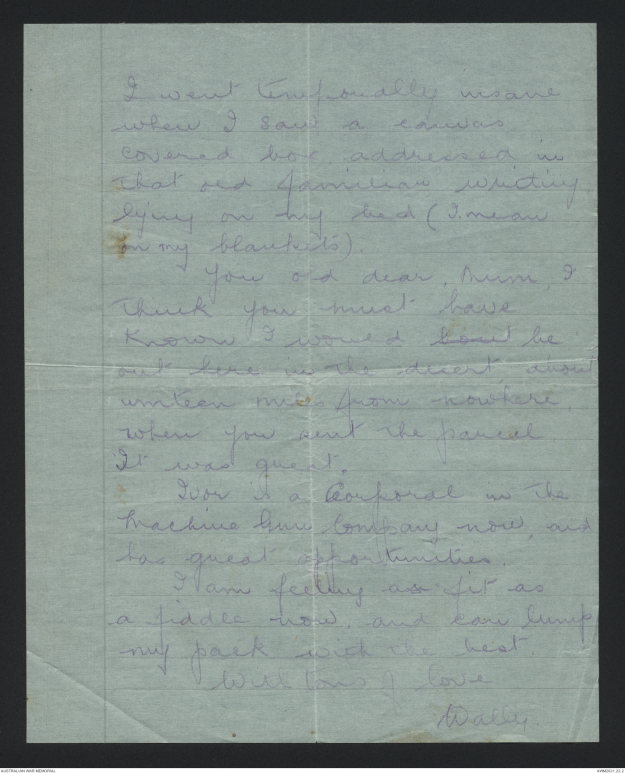 I went temporally insane
when I saw a canvas
covered box addressed in
that old familiar writing,
lying on my bed (I mean
on my blankets).
You old dear, Mum, I
think you must have
known I would be
out here in the desert, about
umteen miles from nowhere,
when you sent the parcel.
It was great.
Ivor is a Corporal in the
Machine Gun Company now, and
has great opportunities.
I am feeling as fit as
a fiddle now, and can lump
my pack with the best.
With tons of love
Wally.
AUSTRALIAN WAR MEMORIAL